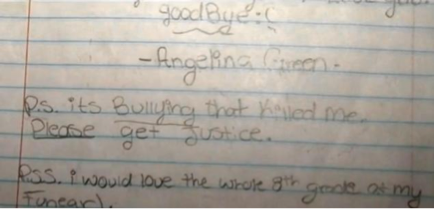 goodBye :(
-Angelina Green.
P.s. its Bullying that killed me.
Please get Justice.
Pss. i would love the whole 8th grade at my
Funearl.